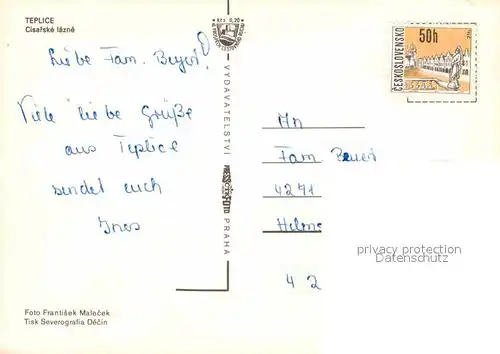 TEPLICE
Císařské lázně
Liebe Fam. Beyert!
Viele liebe Grüße
aus Teplice
sendet euch
Ines
Foto František Maleček
Tisk Severografia Děčín
VYDAVATELSTVÍ
PRESSFOTO
PRAHA
Kčs 0,20
ČESKOSLOVENSKO
50h
An
Fam. Beyert
4271
Helme
42
privacy protection
Datenschutz